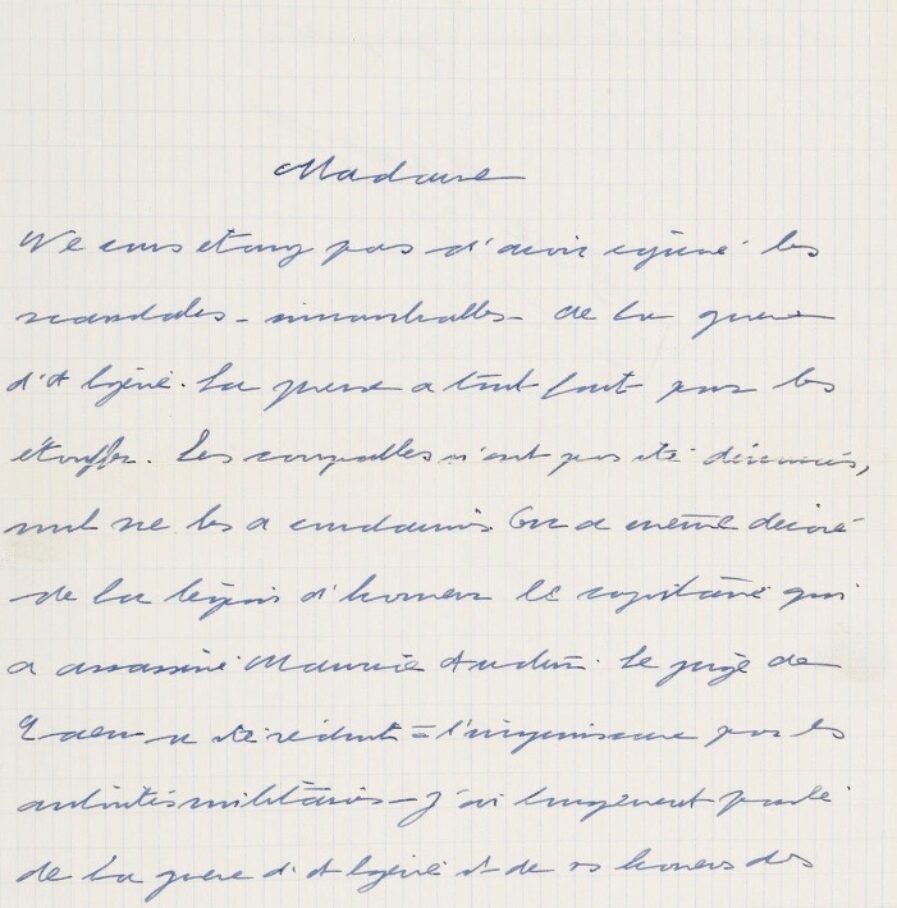 Madame
Ne vous étonnez pas d'avoir ignoré les
scandales - innombrables - de la guerre
d'Algérie. La presse a tout fait pour les
étouffer. Les coupables n'ont pas été dénoncés,
nul ne les a condamnés. On a même décoré
de la légion d'honneur le capitaine qui
a assassiné Maurice Audin. Le juge de
a été réduit à l'impuissance par les
autorités militaires - J'ai longuement parlé
de la guerre d'Algérie et de ses horreurs dès